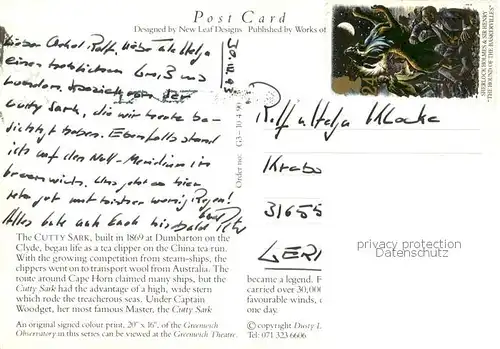 Post Card
Designed by New Leaf Designs Published by Works of
SHERLOCK HOLMES & SIR HENRY
"THE HOUND OF THE BASKERVILLES"
Lieber Onkel Rolf, liebe Tante Helga
einen herzlichen Gruß aus
von der
Cutty Sark, die wir heute be-
sichtigt haben. Ebenfalls stand
ich auf dem Null-Meridian in
Greenwich. Das Wetter hier
wenig Regen!
Alles Gute auch bis bald
Order no: G3-10-4-90
Rolf u Helga Klocke
31655
GER
privacy protection
Datenschutz
The CUTTY SARK, built in 1869 at Dumbarton on the
Clyde, began life as a tea clipper on the China tea run.
With the growing competition from steam-ships, the
clippers went on to transport wool from Australia. The
route around Cape Horn claimed many ships, but the
Cutty Sark had the advantage of a high, wide stern
which rode the treacherous seas. Under Captain
Woodget, her most famous Master, the Cutty Sark
became a legend. F
carried over 30,000
favourable winds,
one day.
An original signed colour print, 20" x 16", of the Greenwich
Observatory in this series can be viewed at the Greenwich Theatre.
© copyright Dusty L
Tel: 071 323 6606